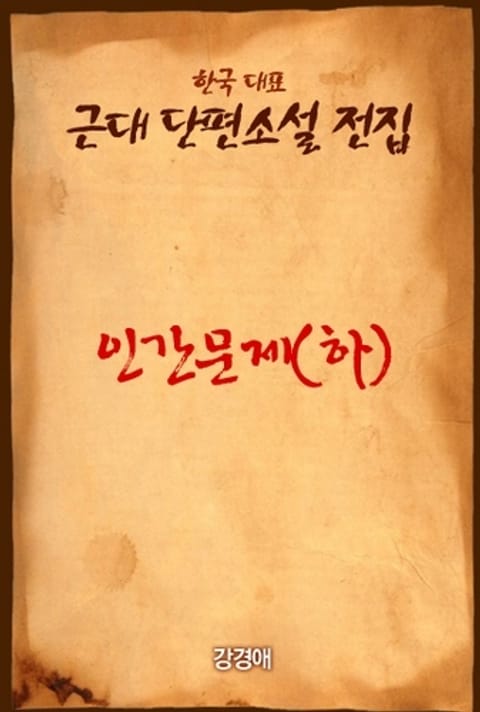 한국 대표
근대 단편소설 전집
인간문제(하)
강경애